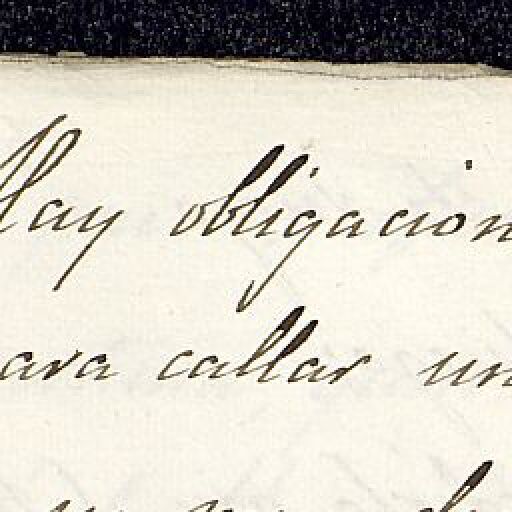 Hay obligacion
para callar un